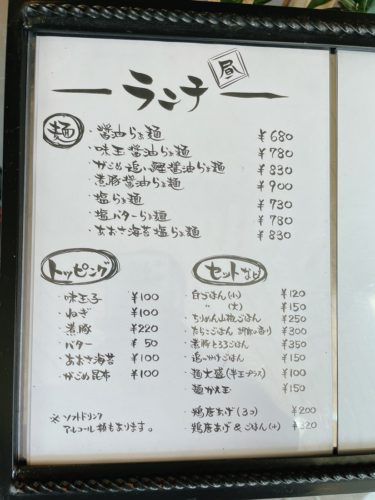 昼
ランチ
麺
・醤油らぁ麺 ¥680
・味玉醤油らぁ麺 ¥780
・がごめ追い鰹醤油らぁ麺 ¥830
・煮豚醤油らぁ麺 ¥900
・塩らぁ麺 ¥730
・塩バターらぁ麺 ¥780
・あおさ海苔塩らぁ麺 ¥830
トッピング
・味玉子 ¥100
・ねぎ ¥100
・煮豚 ¥220
・バター ¥50
・あおさ海苔 ¥100
・がごめ昆布 ¥100
※ソフトドリンク
アルコール類もあります。
セット
・白ごはん(小) ¥120
・〃(大) ¥150
・ちりめん山椒ごはん ¥250
・たらこごはん ¥300
・煮豚とろろごはん ¥350
・追いつけごはん ¥150
・麺大盛(半玉プラス) ¥100
・麺かえ玉 ¥150
・鶏唐あげ(3コ) ¥200
・鶏唐あげ&ごはん(小) ¥320